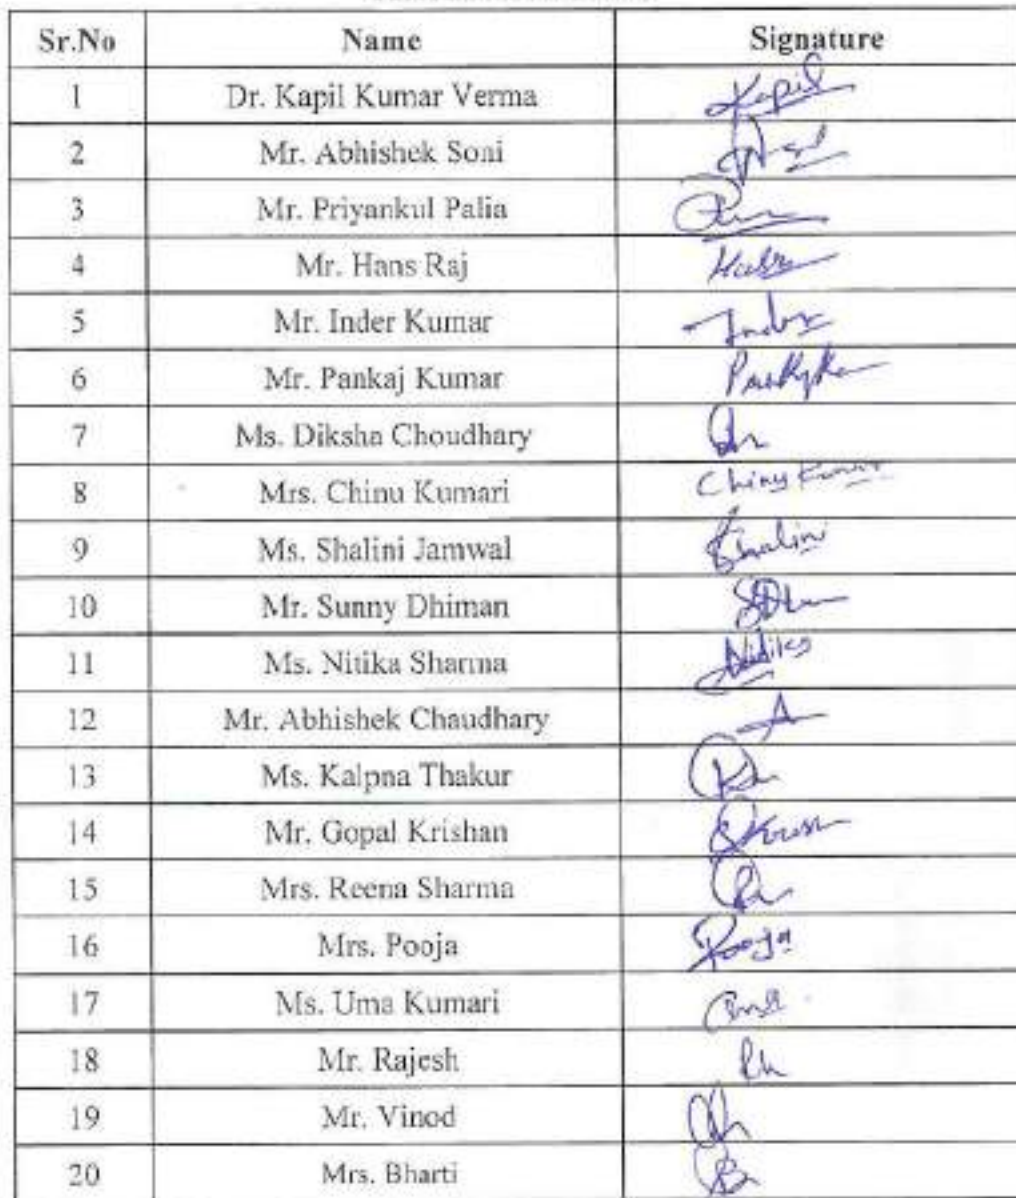 Sr.No Name Signature
1 Dr. Kapil Kumar Verma Kapil
2 Mr. Abhishek Soni
3 Mr. Priyankul Palia
4 Mr. Hans Raj
5 Mr. Inder Kumar Inder
6 Mr. Pankaj Kumar
7 Ms. Diksha Choudhary
8 Mrs. Chinu Kumari
9 Ms. Shalini Jamwal Shalini
10 Mr. Sunny Dhiman
11 Ms. Nitika Sharma Nitika
12 Mr. Abhishek Chaudhary A
13 Ms. Kalpna Thakur
14 Mr. Gopal Krishan
15 Mrs. Reena Sharma
16 Mrs. Pooja Pooja
17 Ms. Uma Kumari
18 Mr. Rajesh
19 Mr. Vinod
20 Mrs. Bharti